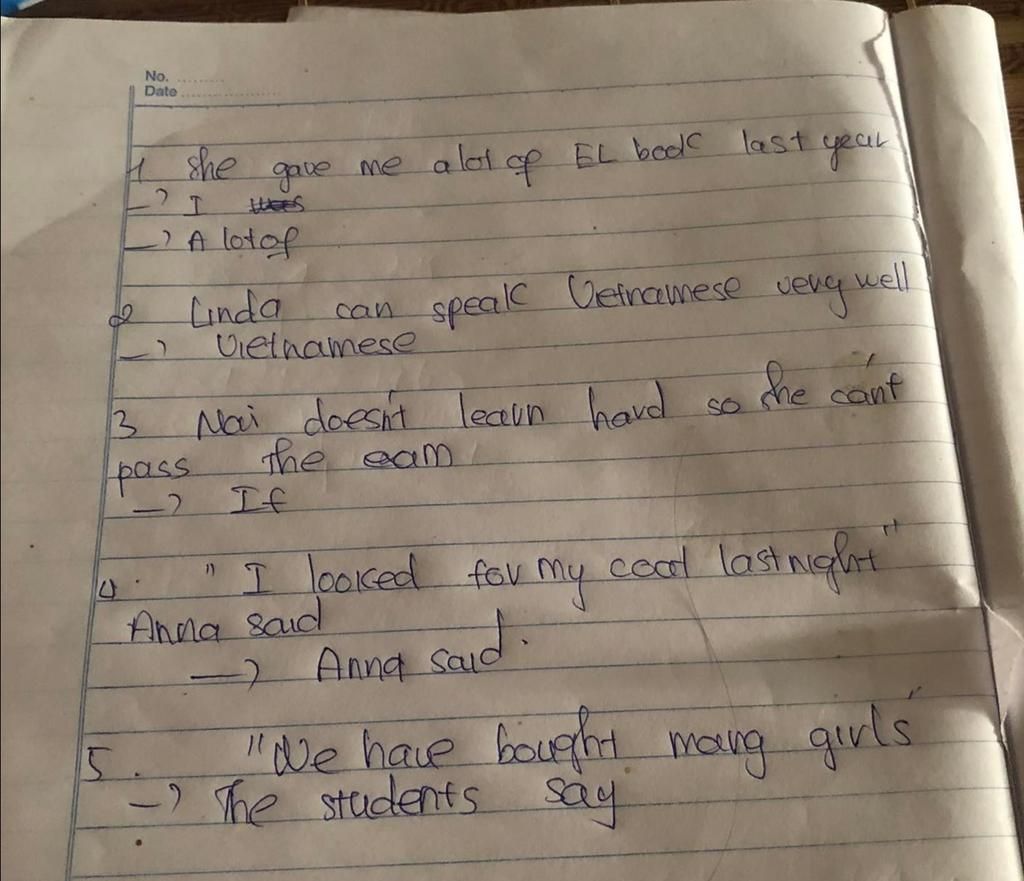 No. ..........
Date ....................
1 She gave me a lot of EL book last year
-> I
-> A lot of
2 Linda can speak Vietnamese very well
-> Vietnamese
3 Nai doesn't learn hard so she can't
pass the eam
-> If
4. "I looked for my coat last night"
Anna said
-> Anna said.
5. "We have bought many girls"
-> The students say